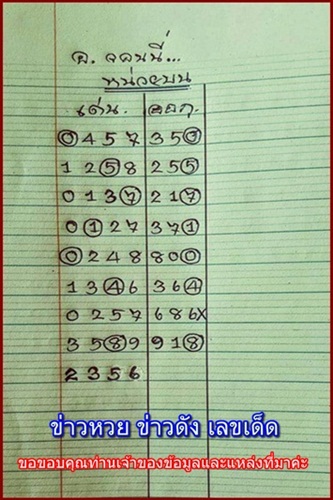 อ. จอนนี่...
หน่วยบน
เด่น. ออก.
0 4 5 7 3 5 0
1 2 5 8 2 5 5
0 1 3 7 2 1 7
0 1 2 7 3 7 1
0 2 4 8 8 0 0
1 3 4 6 3 6 4
0 2 5 7 6 8 6 X
3 5 8 9 9 1 8
2 3 5 6
ข่าวหวย ข่าวดัง เลขเด็ด
ขอขอบคุณท่านเจ้าของข้อมูลและแหล่งที่มาค่ะ